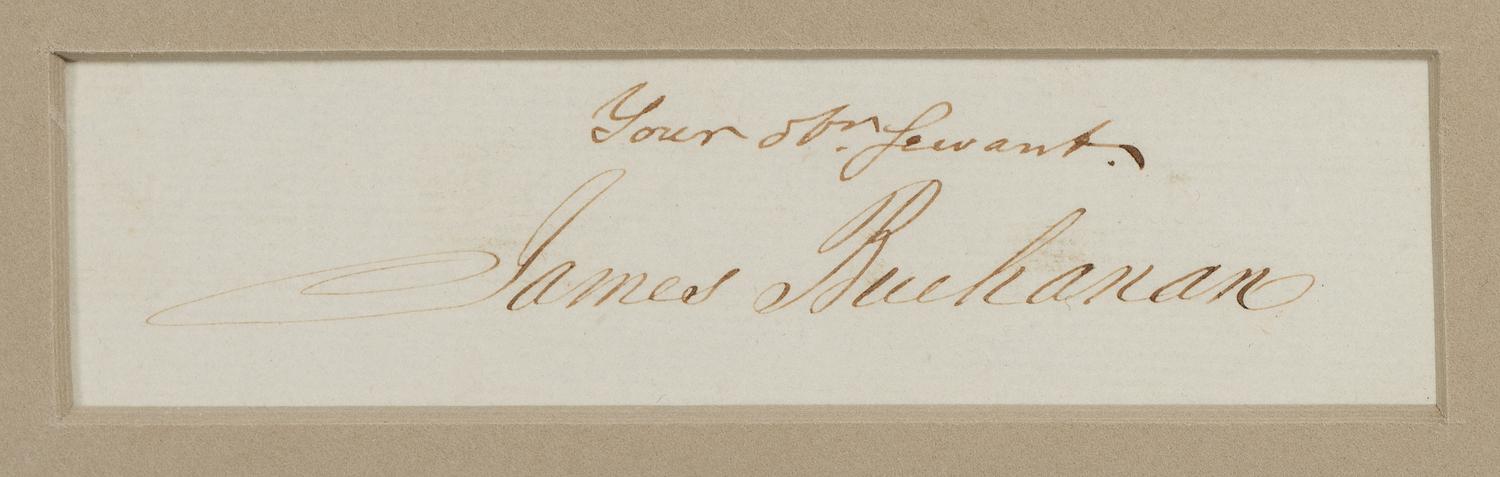 Your obr. Servant.
James Buchanan